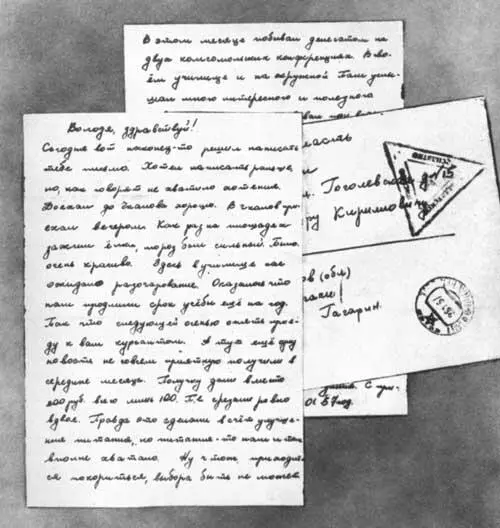 В этом месяце побывал делегатом на
двух комсомольских конференциях. В сво-
ём училище и на окружной. Там услы-
шал много интересного и полезного
Володя, здравствуй!
Сегодня вот наконец-то решил написать
тебе письмо. Хотел написать раньше,
но, как говорят не хватило хотения.
Доехали до Чкалова хорошо. В Чкалов при-
ехали вечером. Как раз на площадях
зажгли ёлки, мороз был сильный. Было
очень красиво. Здесь в училище нас
ожидало разочарование. Оказалось что
нам продлили срок учёбы ещё на год.
Так что следующей осенью опять прие-
ду к вам курсантом. А тут ещё одну
новость не совсем приятную получили в
середине месяца. Получку дали вместо
200 руб. всего лишь 100. Т.е. срезано ровно
вдвое. Правда это сделано в счёт улучше-
ния питания, но питание-то нам и так
вполне хватало. Ну что ж, приходит-
ся покориться, выбора быть не может
ласть
Гоголевская д. 15
ру Кириловичу
ов (обл)
Гагарин.
С при-
01 57 год.